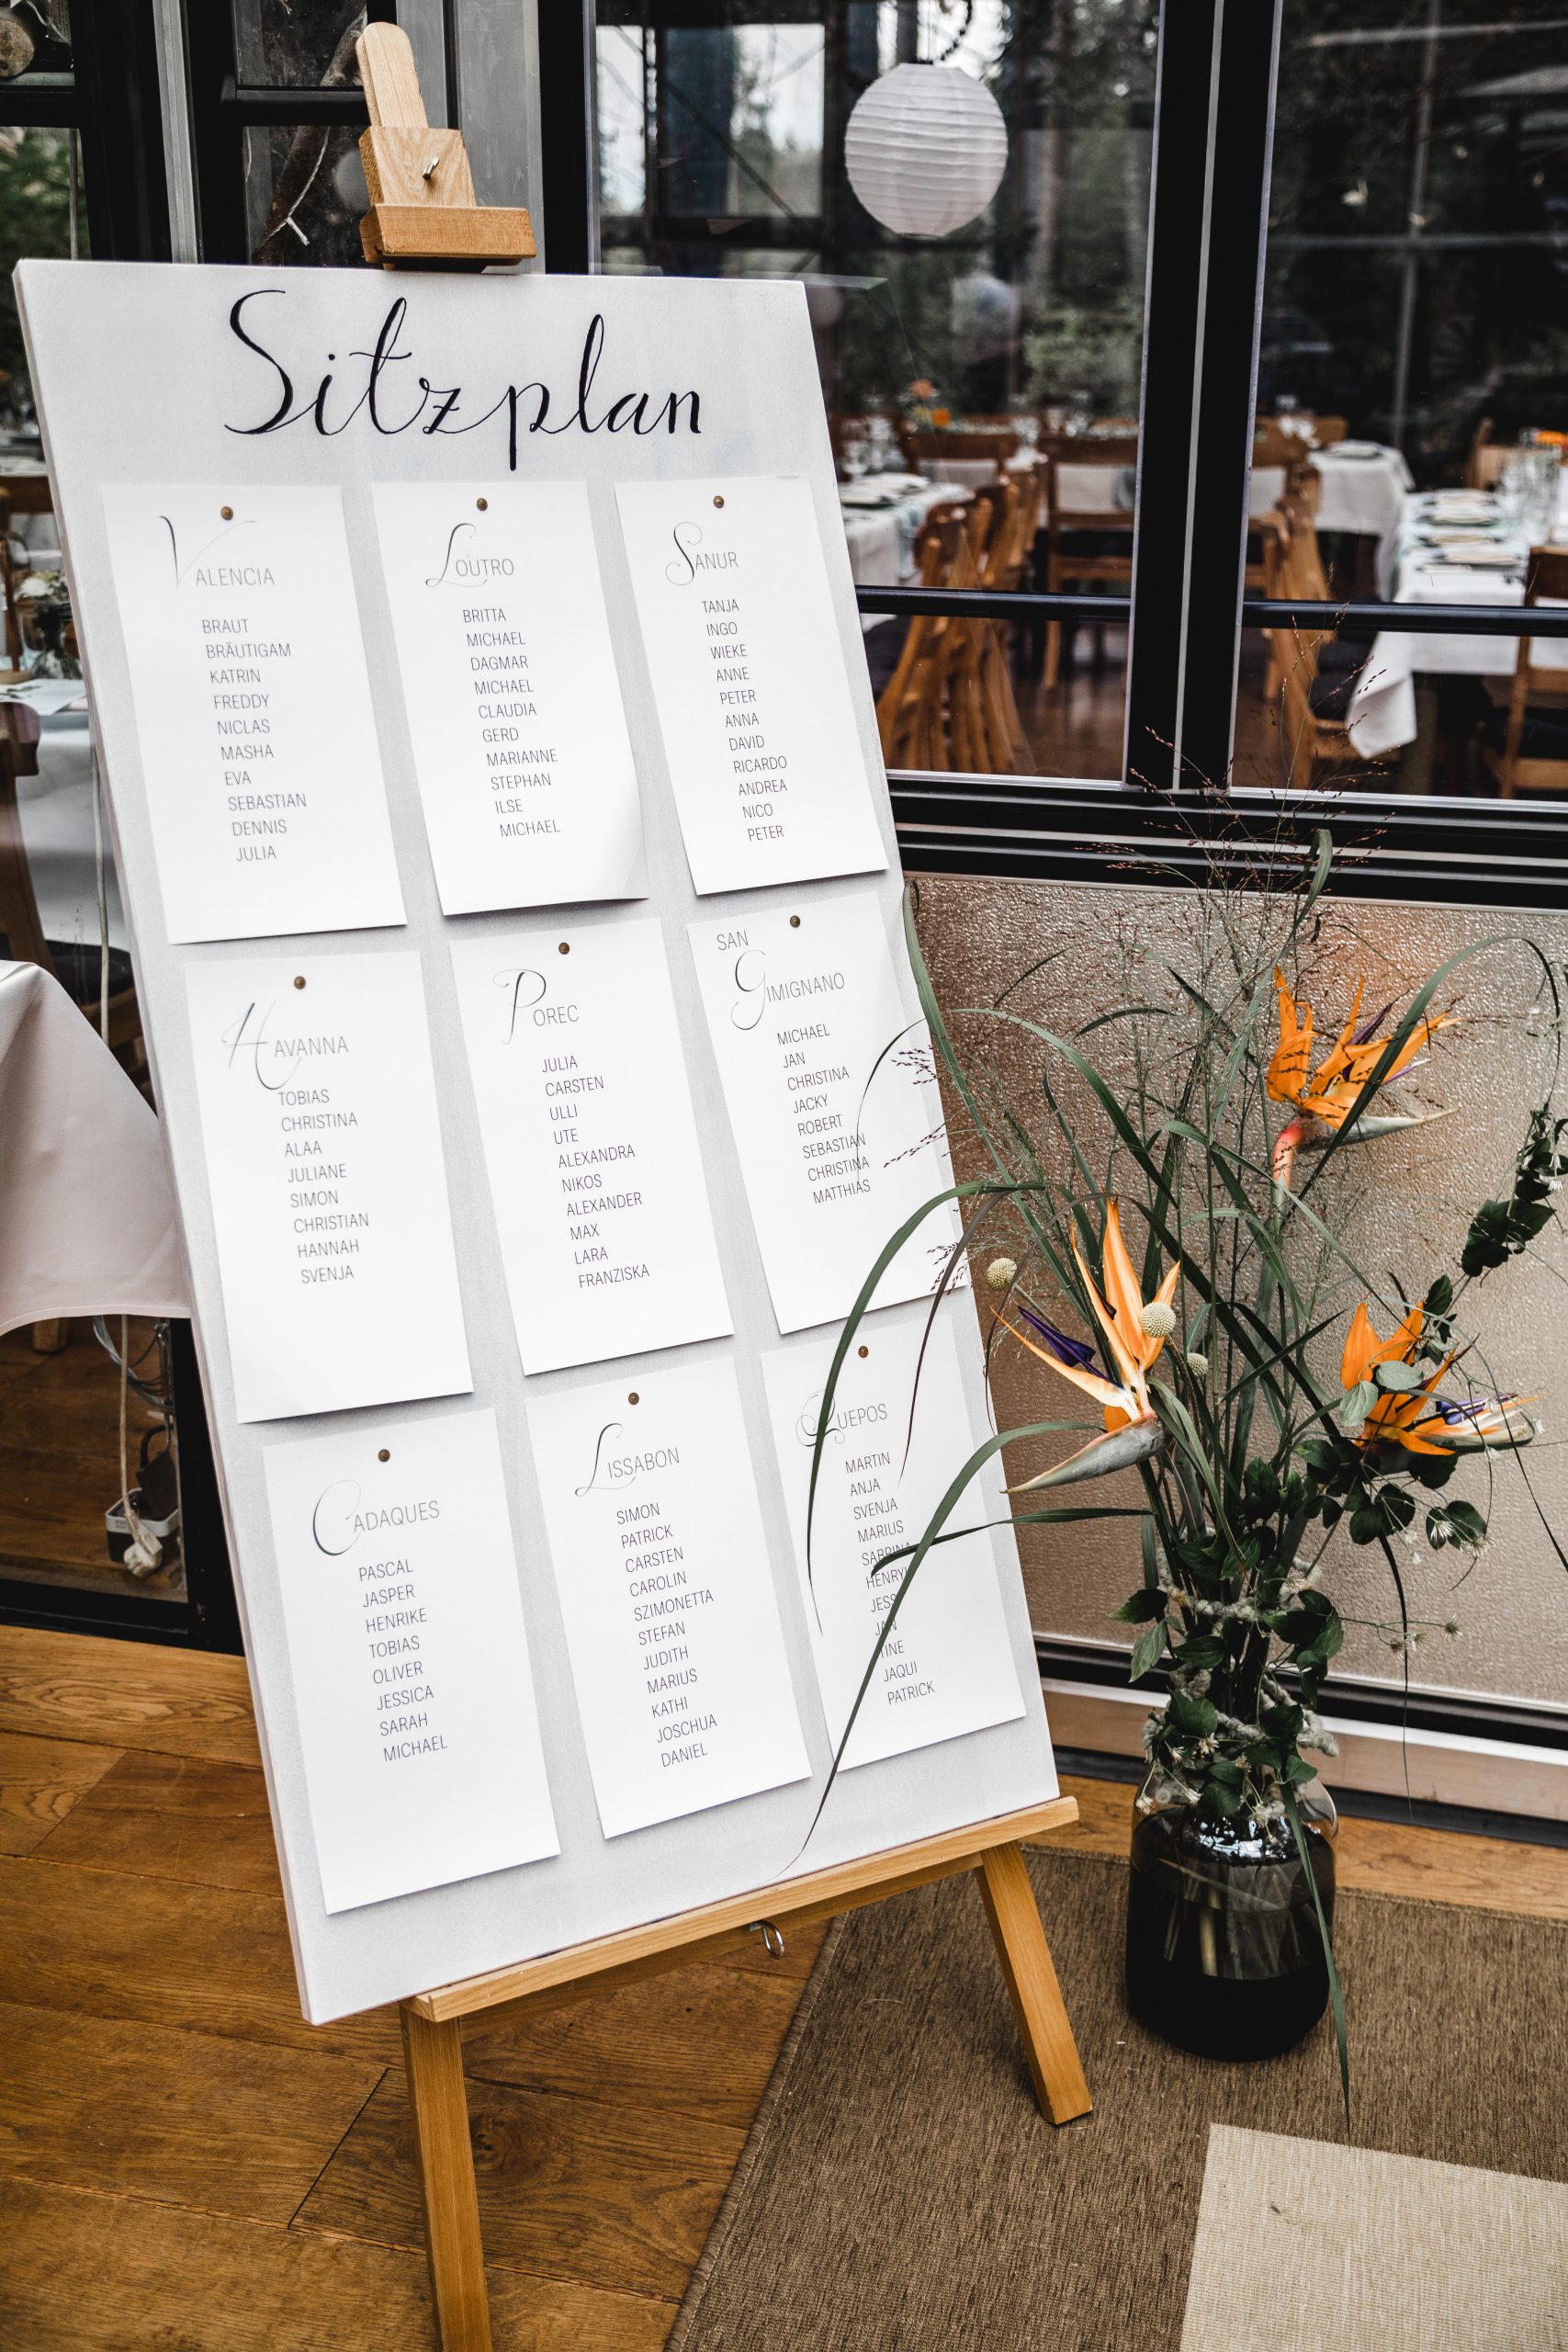 Sitzplan
VALENCIA
BRAUT
BRÄUTIGAM
KATRIN
FREDDY
NICLAS
MASHA
EVA
SEBASTIAN
DENNIS
JULIA
LOUTRO
BRITTA
MICHAEL
DAGMAR
MICHAEL
CLAUDIA
GERD
MARIANNE
STEPHAN
ILSE
MICHAEL
SANUR
TANJA
INGO
WIEKE
ANNE
PETER
ANNA
DAVID
RICARDO
ANDREA
NICO
PETER
HAVANNA
TOBIAS
CHRISTINA
ALAA
JULIANE
SIMON
CHRISTIAN
HANNAH
SVENJA
POREC
JULIA
CARSTEN
ULLI
UTE
ALEXANDRA
NIKOS
ALEXANDER
MAX
LARA
FRANZISKA
SAN
GIMIGNANO
MICHAEL
JAN
CHRISTINA
JACKY
ROBERT
SEBASTIAN
CHRISTINA
MATTHIAS
CADAQUES
PASCAL
JASPER
HENRIKE
TOBIAS
OLIVER
JESSICA
SARAH
MICHAEL
LISSABON
SIMON
PATRICK
CARSTEN
CAROLIN
SZIMONETTA
STEFAN
JUDITH
MARIUS
KATHI
JOSCHUA
DANIEL
QUEPOS
MARTIN
ANJA
SVENJA
MARIUS
SABRINA
JAN
TINE
JAQUI
PATRICK